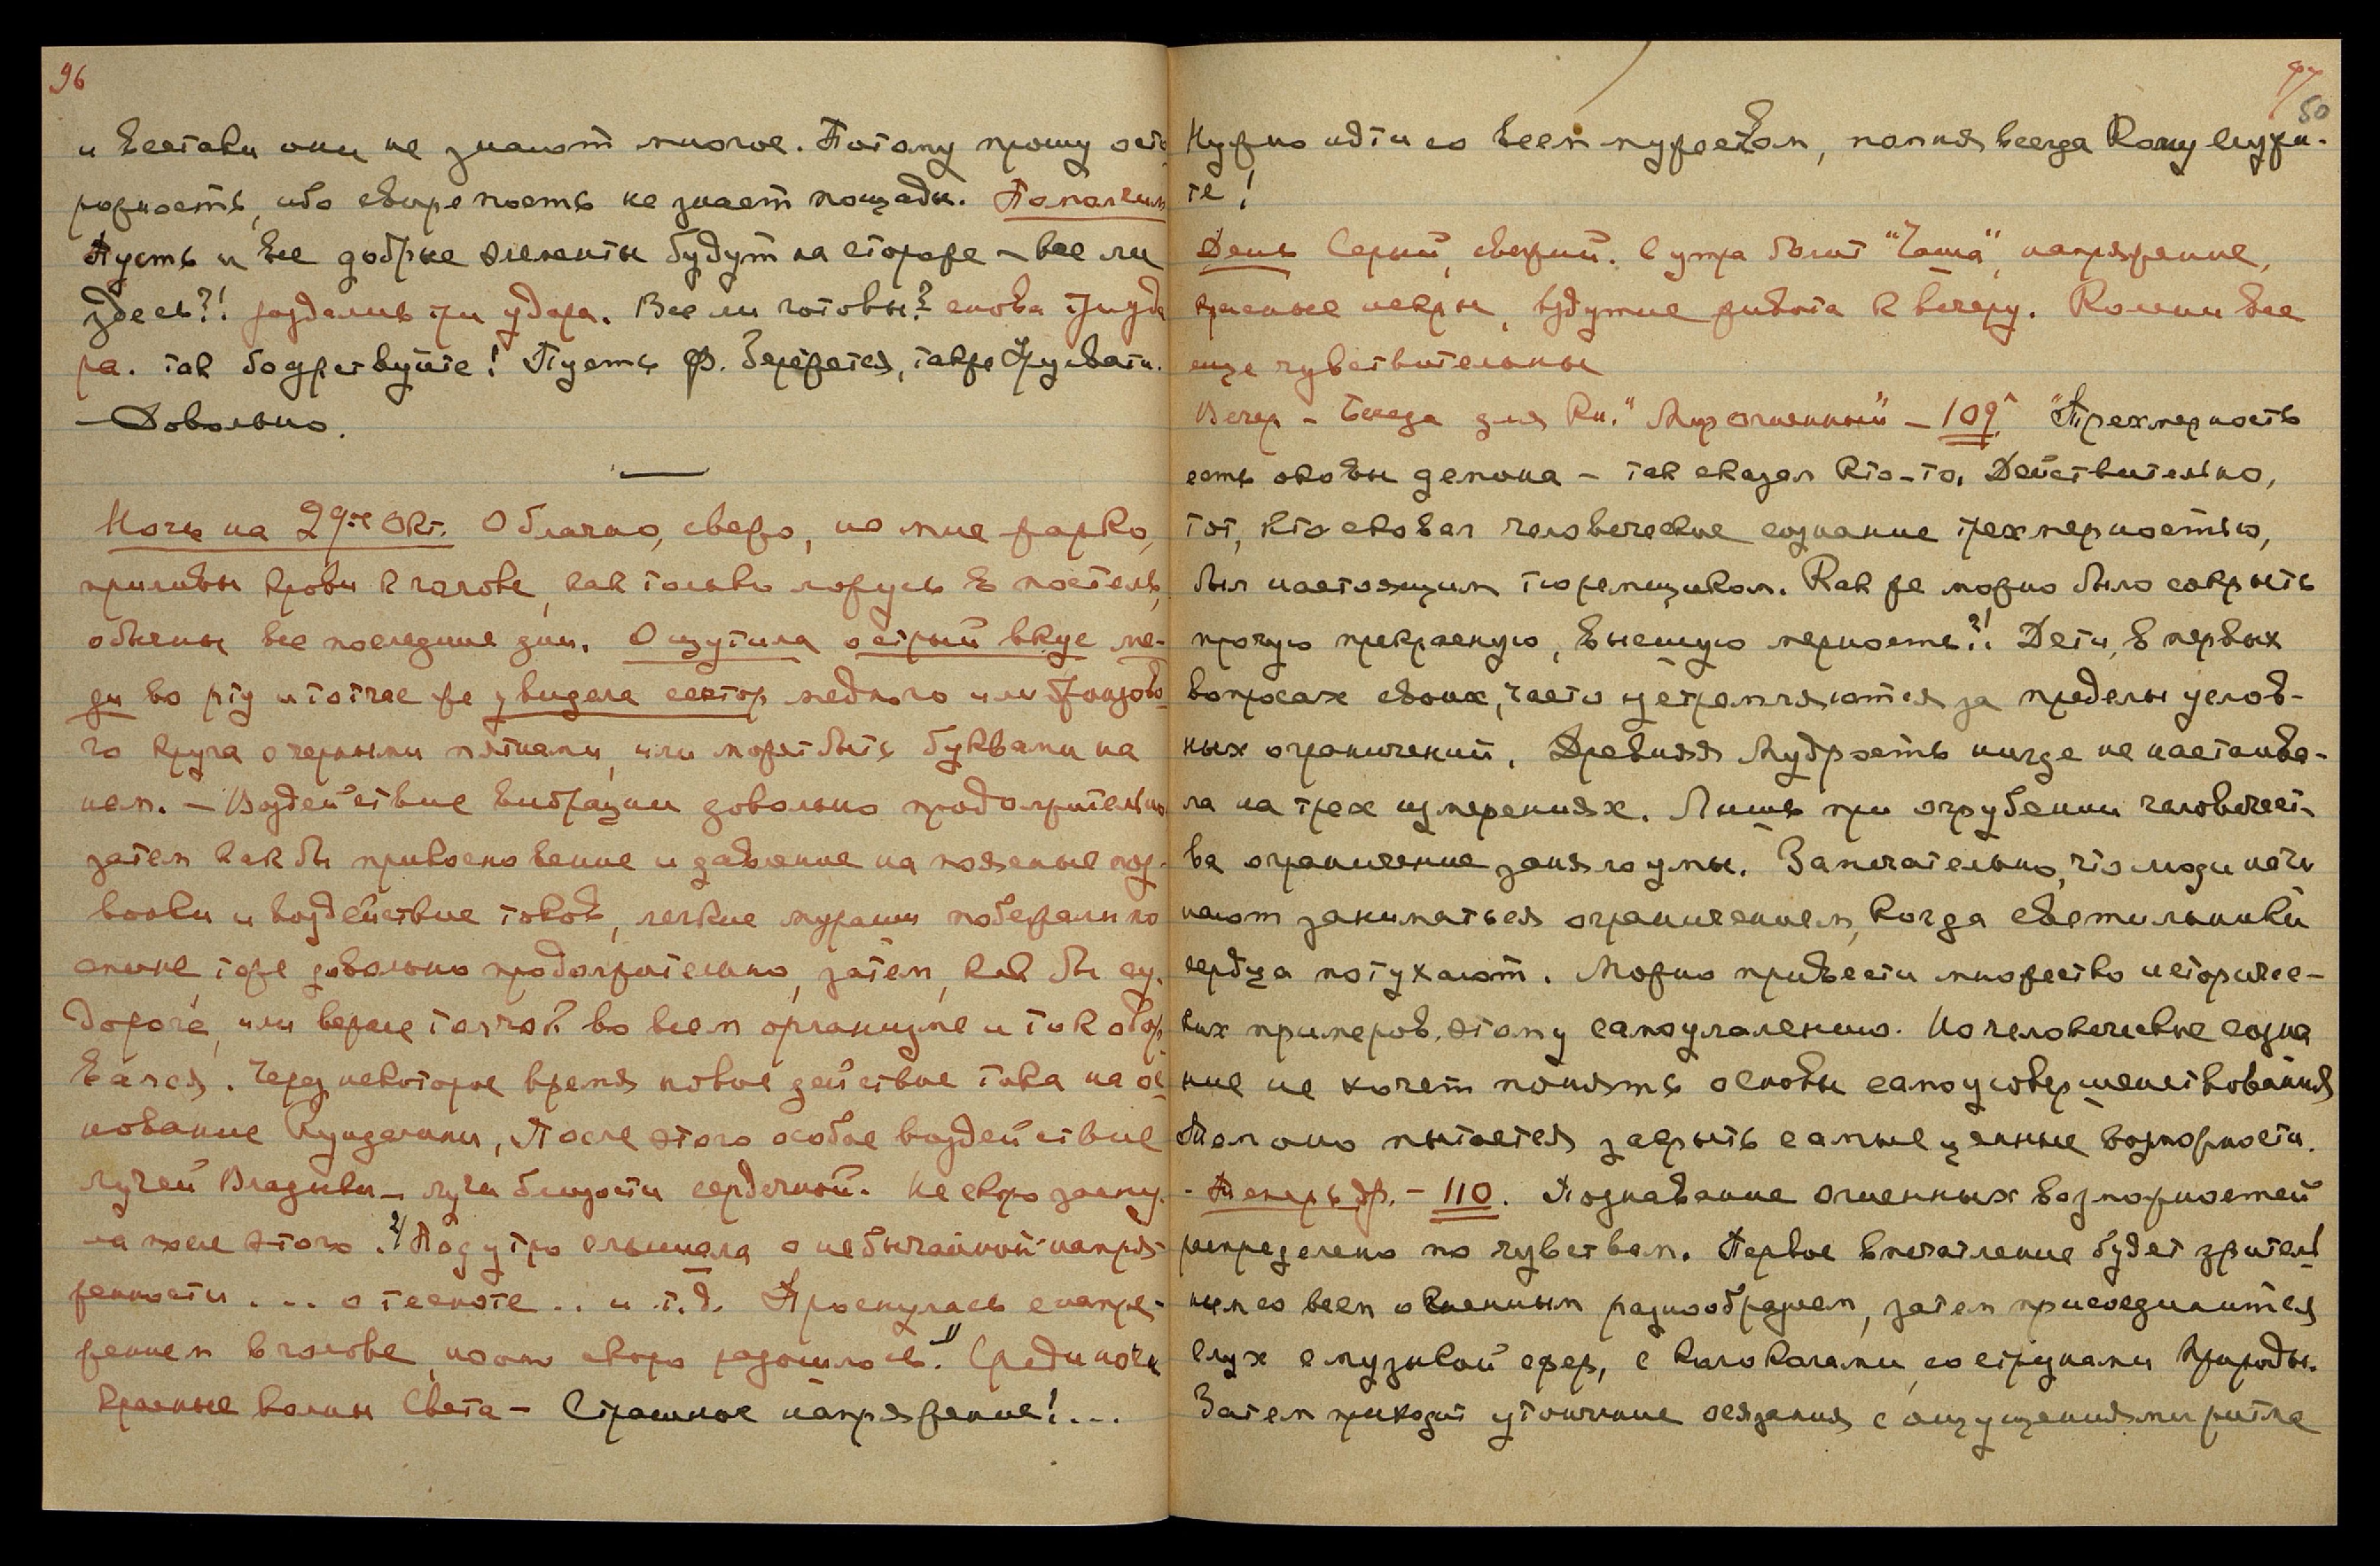 96
и всетаки они не знают многое. Потому прошу осто
рожность, ибо свирепость не знает пощады. Помолчим
Пусть и все добрые элементы будут на стороже – все ли
здесь?! раздались три удара. Все ли готовы? снова три уда
ра. так бодрствуйте! Пусть Ф. бережется, также
– Довольно.
Ночь на 29-ое Окт. Облачно, свежо, но мне жарко,
приливы крови к голове, как только ложусь в постель,
обычны все последние дни. Ощутила острый вкус ме-
ди во рту и тотчас же увидела сектор медного или бронзово
го круга с черными пятнами, или может быть буквами на
нем. – Воздействие вибрации довольно продолжительно
затем как бы прикосновение и давление на поясные поз-
вонки и воздействие токов, легкие мураши побежали по
спине, тоже довольно продолжительно, затем, как бы су-
дорога, или вернее толчок во всем организме и ток обор
вался. Через некоторое время новое действие тока на ос
нование Кундалини, После этого особое воздействие
лучей Владыки – лучи близости сердечной. Не скоро засну-
ла после этого. Под утро слышала о необычайной напря-
женности ... о тесноте .. и т.д. Проснулась с напря-
жением в голове, но оно скоро разошлось." Среди ночи
Красные волны Света – Страшное напряжение!...
97
50
Нужно идти со всем мужеством, помня всегда Кому служи-
те!
День Серый, свежий. С утра болит "Чаша", напряжение,
красные искры, вздутие живота к вечеру. Колени все
еще чувствительны
Вечер – Беседа для Кн." Мир огненный" – 109. "Трехмерность
есть оковы демона – так сказал кто-то. Действительно,
тот, кто сковал человеческое сознание трехмерностью,
был настоящим тюремщиком. Как же можно было сокрыть
прочую прекрасную, высшую мерность?! Дети, в первых
вопросах своих, часто устремляются за пределы услов-
ных ограничений. Древняя Мудрость нигде не настаива-
ла на трех измерениях. Лишь при огрубении человечест-
ва ограничение заняло умы. Замечательно, что люди начи
нают заниматься ограничением, когда светильники
сердца потухают. Можно привести множество историчес-
ких примеров этому самоумалению. Но человеческое созна
ние не хочет понять основы самоусовершенствования
Тем оно пытается закрыть самые ценные возможности.
– Теперь др. – 110. Познавание огненных возможностей
распределено по чувствам. Первое впечатление будет зритель
ным со всем огненным разнообразием, затем присоединится
слух с музыкой сфер, с колоколами, со струнами Природы.
Затем приходит утончение осязания с ощущениями ритма